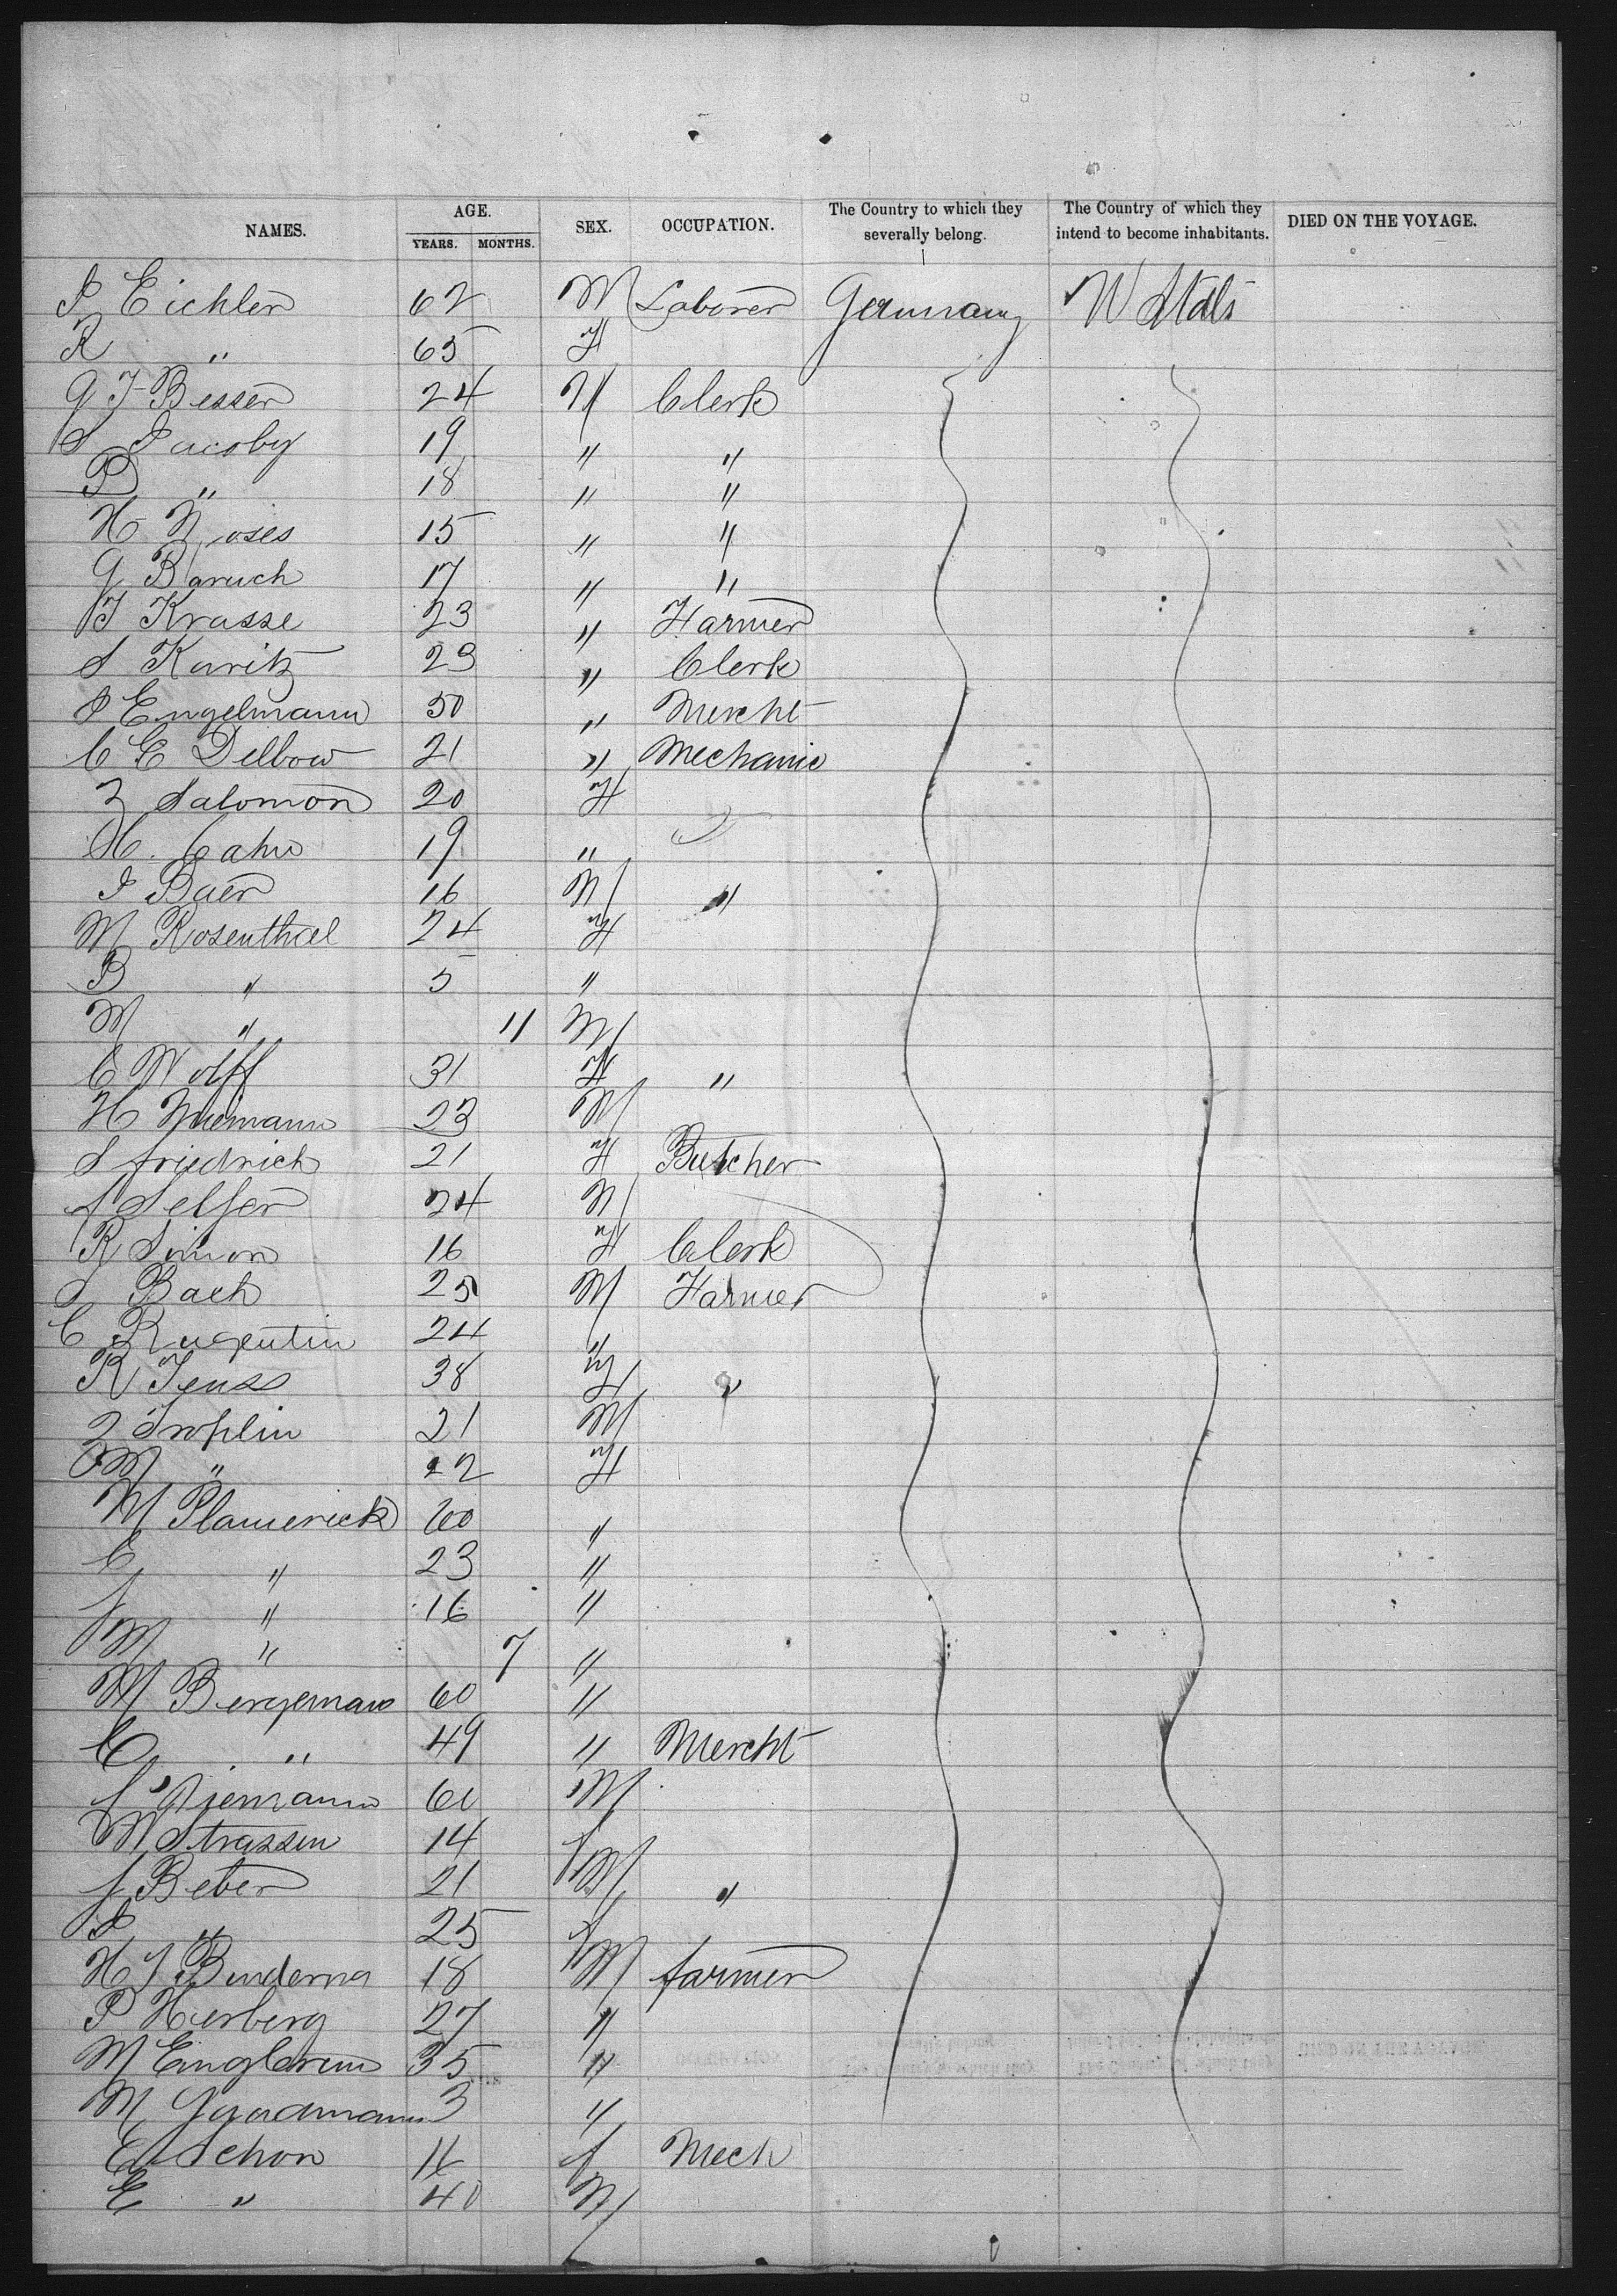 NAMES. AGE. YEARS. MONTHS. SEX. OCCUPATION. The Country to which they severally belong. The Country of which they intend to become inhabitants. DIED ON THE VOYAGE.
Eichler 62 M Laborer Germany U Stats
R " 65 F
G F Besser 24 M Clerk
S Jacoby 19 " "
B " 18 " "
H Moses 15 " "
G Baruch 17 " "
J Krasse 23 " Farmer
S Kuritz 23 " Clerk
Engelmann 50 " Mercht
C E Delbow 21 " Mechanic
Salomon 20 F
H. Cahn 19 "
I Baer 16 M "
M Rosenthal 24 F
B " 5 "
M " 11 M
C Wolff 31 F "
H Niemann 23 M
S friedrich 21 F Butcher
Selfer 24 M
R Simon 16 F Clerk
Bach 25 M Farmer
C 24 "
R Jenss 38 "
Troplin 21 M
M " 22 F
M Plamerick 60 "
C " 23 "
f " 16 "
M " 7 "
M Bergeman 60 "
C " 49 " Mercht
M
W Strassen 14 f
f Beber 21 M "
" 25 f
H J 18 M farmer
P Herberg 27 "
M 35 "
M 3 "
E Schon f Mech
E " 40 M